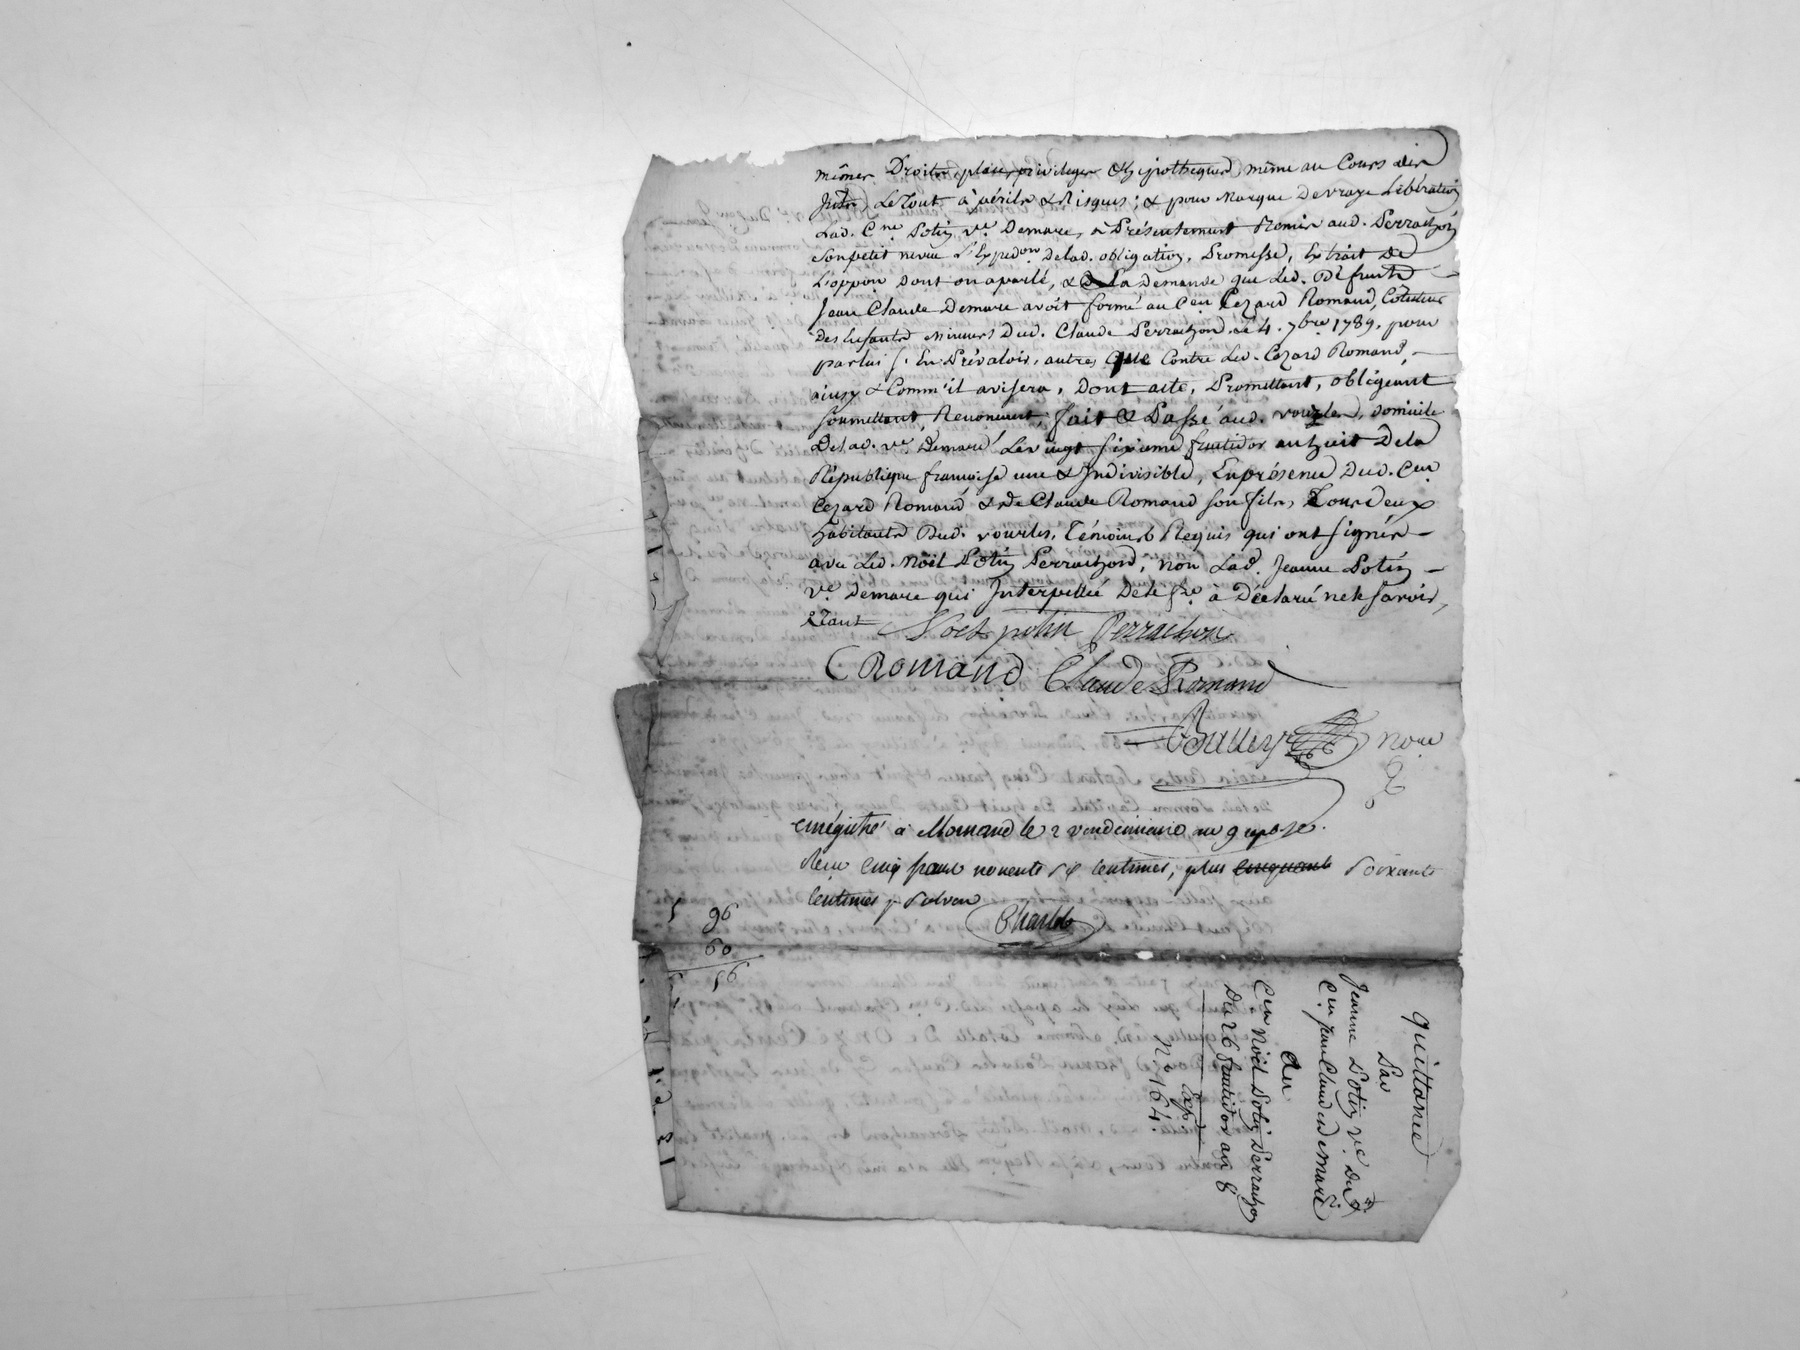 mêmes Droits, place, privileges & hipotheques, même au Cours des
Jntts Le Tout à périls & Risques; & pour Marque De vraye Libération
Lad. Cne Potin ve Demare, a Présentement Remis aud. Perrachon
Son petit neveu L'Expedon Delad. obligation, Promesse, Extrait De
L'oppon Dont on a parlé, & De La Demande que Led. Défunt
Jean Claude Demare avoit formé au Cen Cezard Romand, Cotuteur
Des Enfants Mineurs Dud. Claude Perrachon Le 4. 7bre 1789. pour
par lui s'En Prévaloir, autres que Contre Led. Cezard Romand,
ainsy & Comm'il avisera, Dont acte, Promettant, obligeant
Soumettant, Renoncant, fait & Passé aud. vourles, Domicile
Delad. ve Demare Le vingt sixieme fructidor an huit De la
République francaise une & Jndivisible, En présence Dud. Cen
Cezard Romand & De Claude Romand son fils, Tous Deux
habitants Dud. vourles, Témoins Requis qui ont signés
avec Led. Noël Potin Perrachon, non Lad. Jeanne Potin
ve Demare qui Interpellée De le fre à Déclaré ne le savoir,
Etant
Noel potin Perrachon
C Romand Claude Romand
Balley Nore
enregistré à Mornand le 2 vendemiaire an 9
Reçu Cinq francs novente six Centimes, plus cinquante Soixante
Centimes p
Charlet
5 96
60
6 56
Quittance
Par
Jeanne Potin ve Du
Cen Jean Claude Demare
Au
Cen Noël Potin Perrachon
Du 26 fructidor an 8
Expé
No 164.